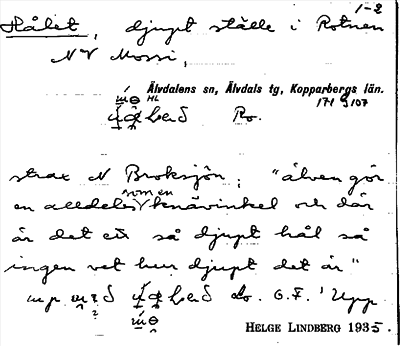 1-2
Hålet, djupt ställe i Rotnen
NV Mossi,
Älvdalens sn, Älvdals tg, Kopparbergs län.
HL 171 S 107
Ro.
strax N Broksjön; "älven gör
en alldeles som en knävinkel och där
är det ett så djupt hål så
ingen vet hur djupt det är"
Upp
HELGE LINDBERG 1935.